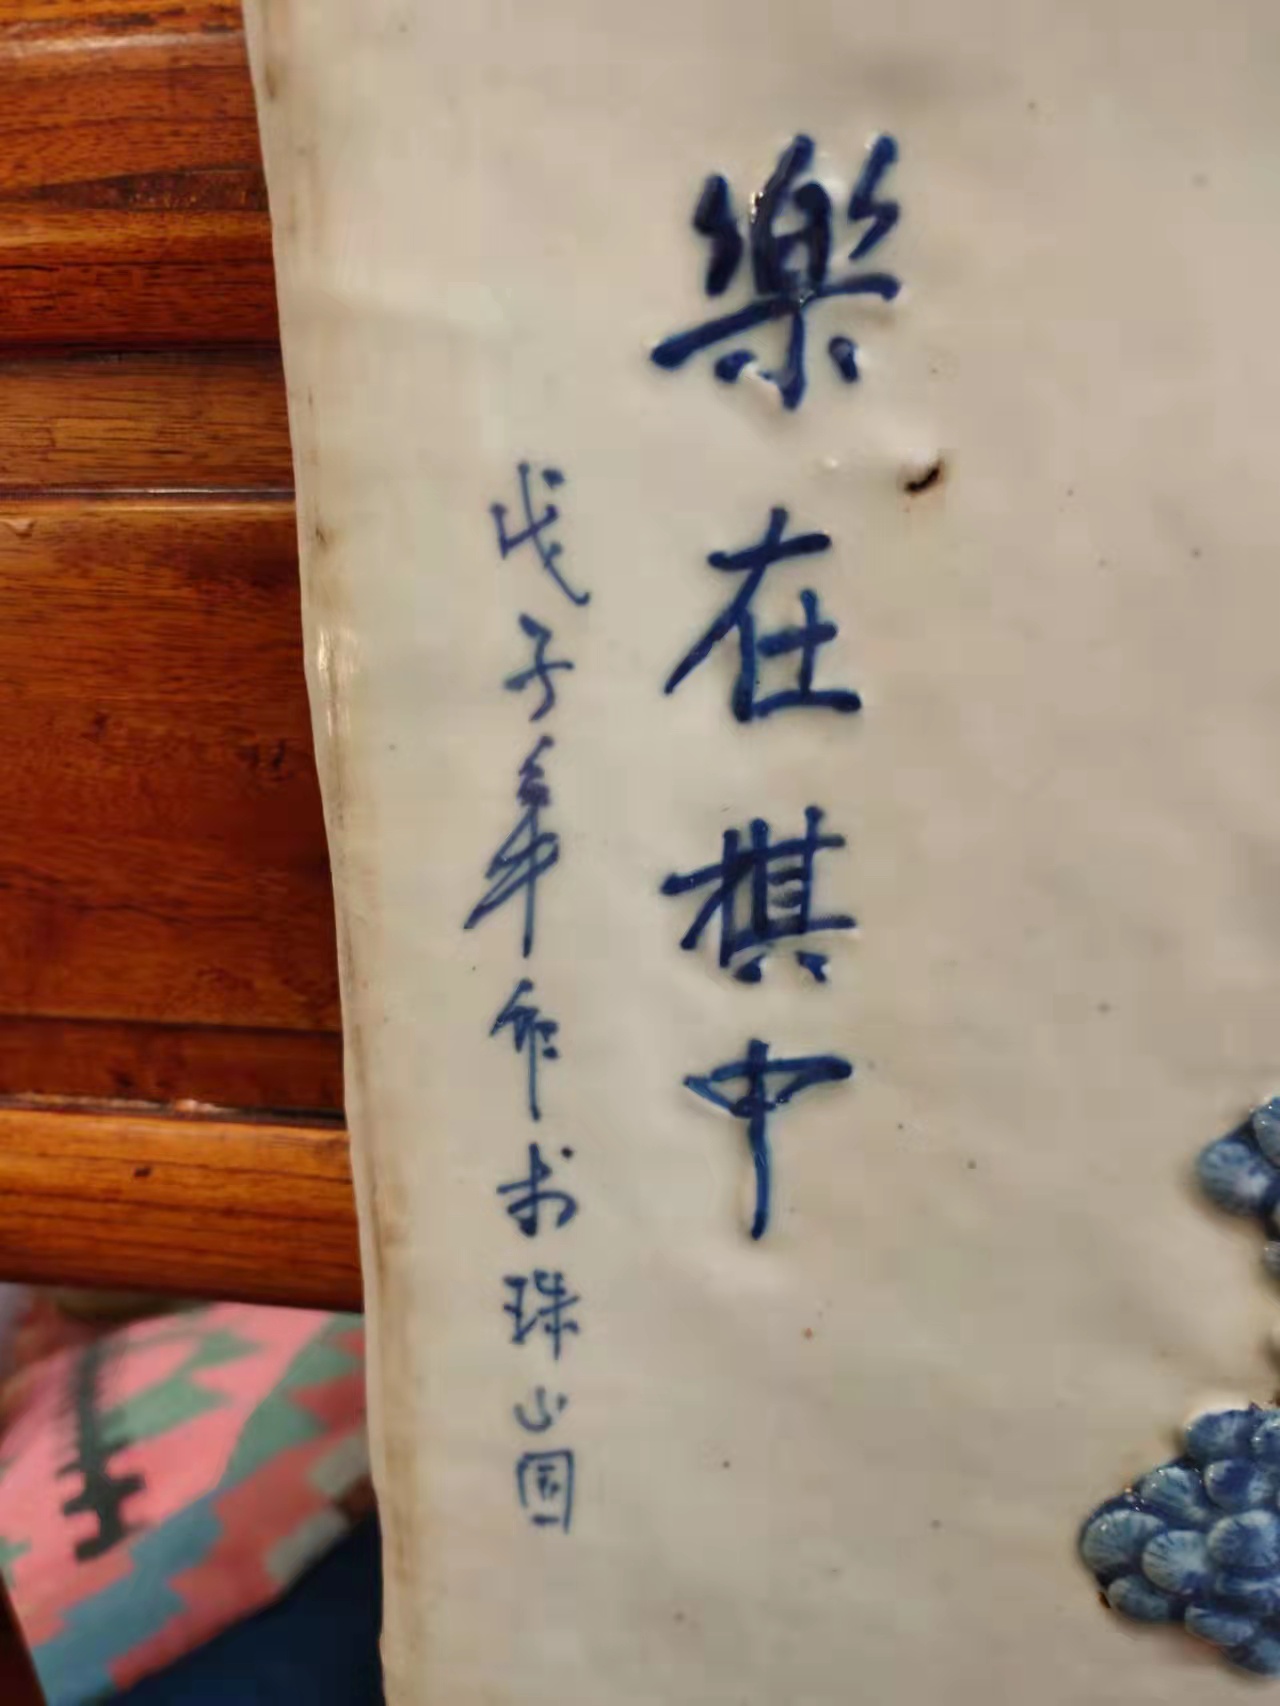 樂在棋中
戊子年作於珠山園